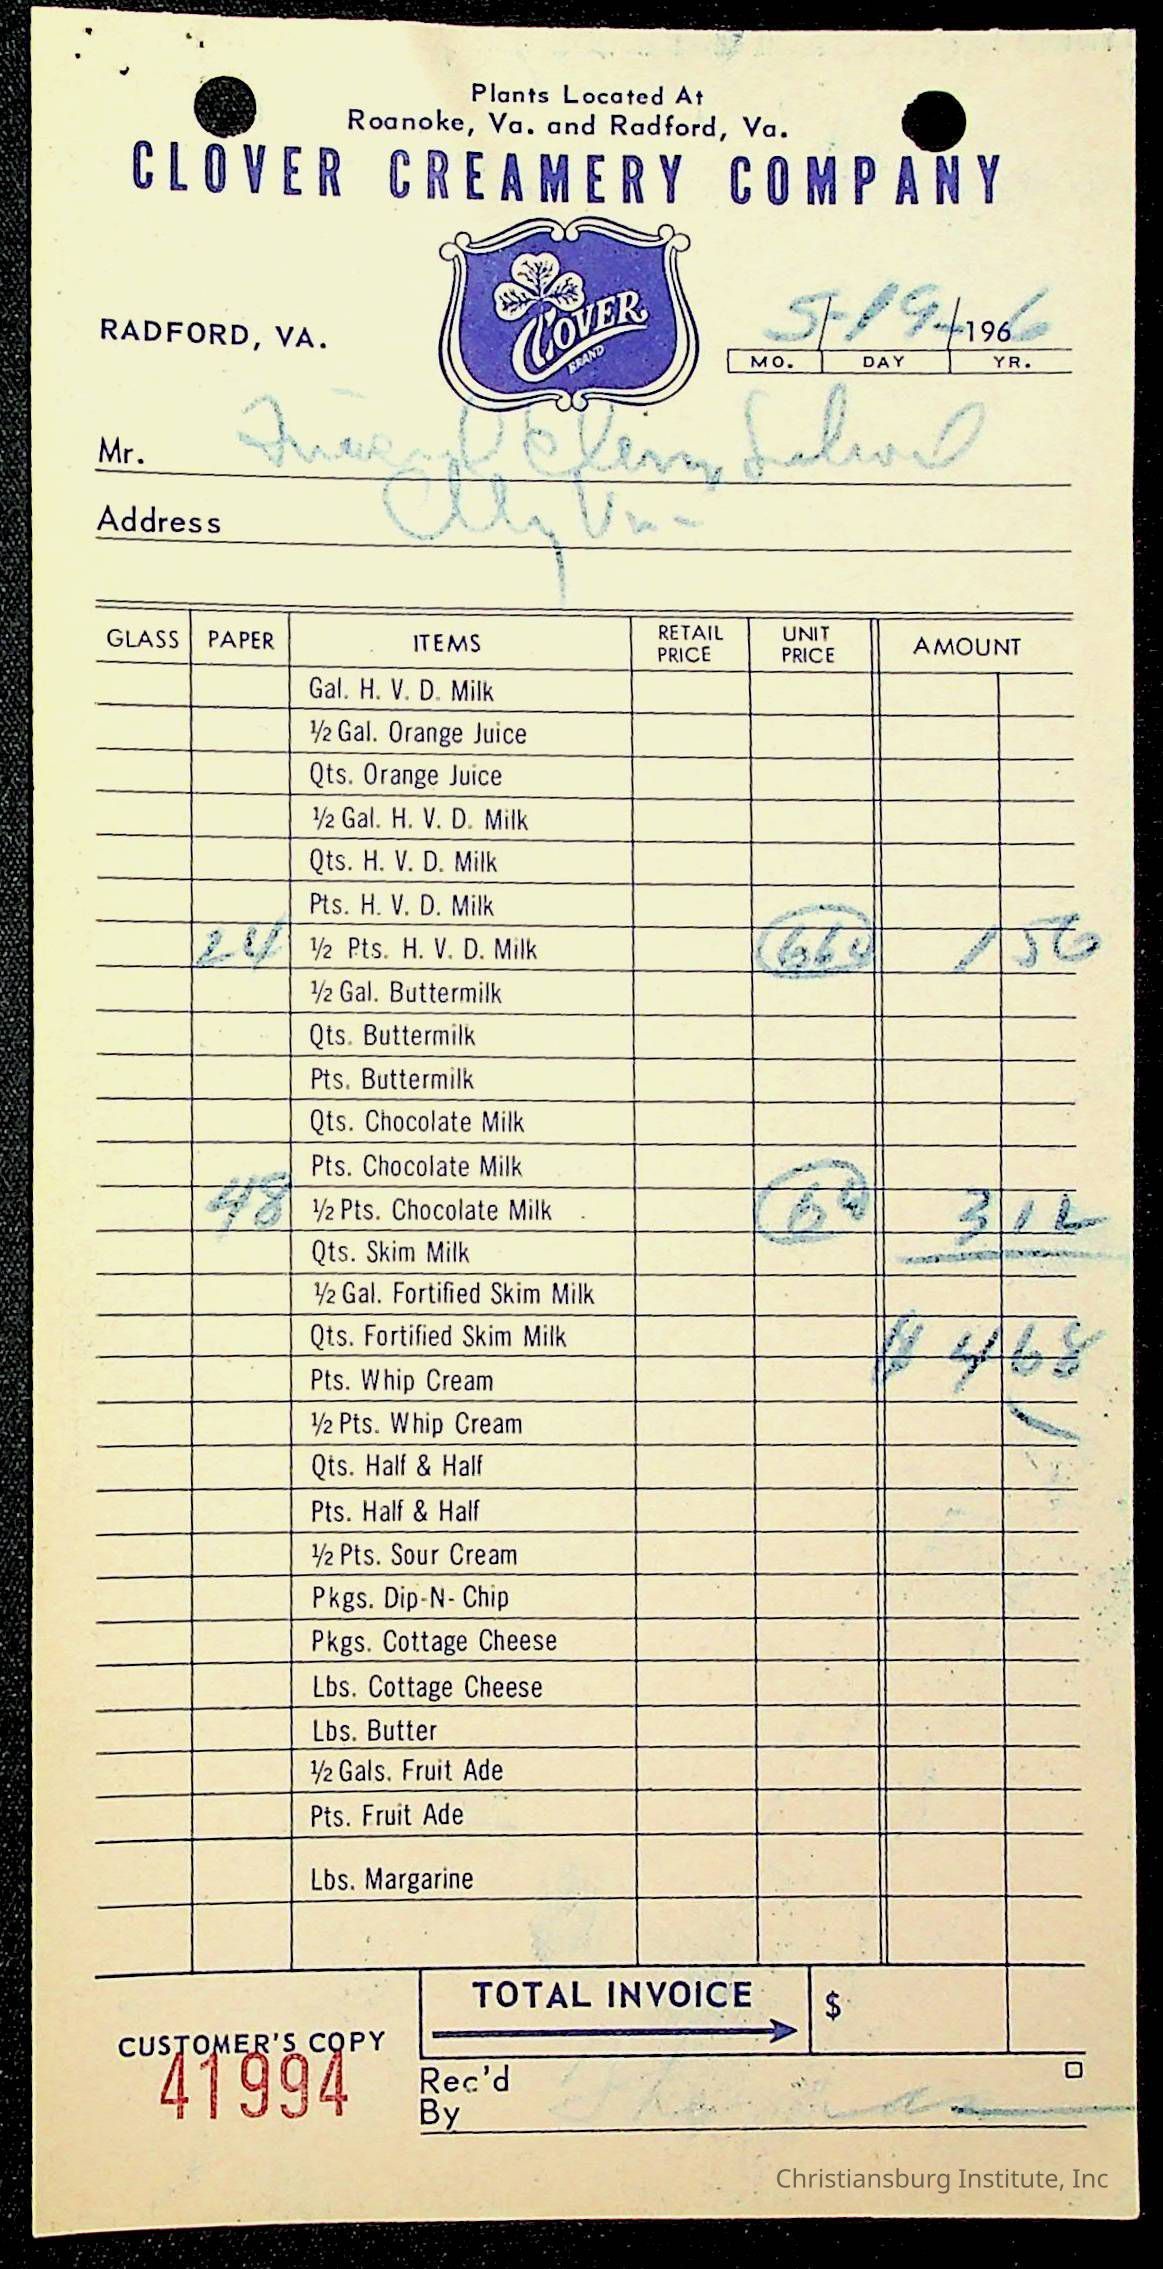 Plants Located At
Roanoke, Va. and Radford, Va.
CLOVER CREAMERY COMPANY
CLOVER
BRAND
RADFORD, VA.
5-19-1966
MO. DAY YR.
Mr. School
Address Va-
GLASS PAPER ITEMS RETAIL PRICE UNIT PRICE AMOUNT
Gal. H. V. D. Milk
½ Gal. Orange Juice
Qts. Orange Juice
½ Gal. H. V. D. Milk
Qts. H. V. D. Milk
Pts. H. V. D. Milk
24 ½ Pts. H. V. D. Milk 1 56
½ Gal. Buttermilk
Qts. Buttermilk
Pts. Buttermilk
Qts. Chocolate Milk
Pts. Chocolate Milk
48 ½ Pts. Chocolate Milk 3 12
Qts. Skim Milk
½ Gal. Fortified Skim Milk
Qts. Fortified Skim Milk $ 4 68
Pts. Whip Cream
½ Pts. Whip Cream
Qts. Half & Half
Pts. Half & Half
½ Pts. Sour Cream
Pkgs. Dip-N-Chip
Pkgs. Cottage Cheese
Lbs. Cottage Cheese
Lbs. Butter
½ Gals. Fruit Ade
Pts. Fruit Ade
Lbs. Margarine
TOTAL INVOICE $
CUSTOMER'S COPY
41994
Rec'd
By
Christiansburg Institute, Inc